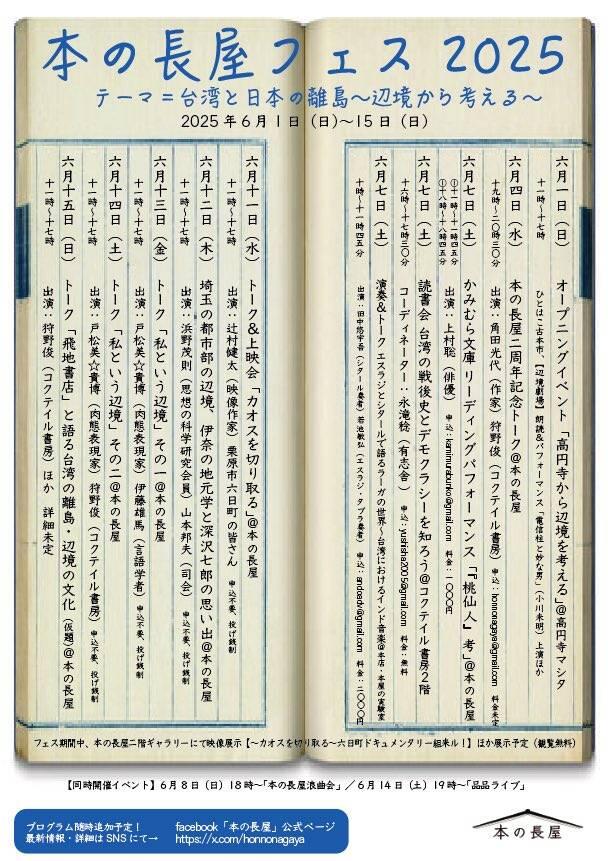 本の長屋フェス 2025
テーマ=台湾と日本の離島〜辺境から考える〜
2025年6月1日(日)〜15日(日)
六月一日(日) オープニングイベント「高円寺から辺境を考える」@高円寺マシタ
十一時〜十七時 ひとはこ古本市、【辺境劇場】朗読&パフォーマンス「電信柱と妙な男」(小川未明)上演ほか
六月四日(水) 本の長屋二周年記念トーク@本の長屋
十九時〜二〇時三〇分 出演:角田光代(作家)狩野俊(コクテイル書房) 申込:honnonagaya@gmail.com 料金未定
六月七日(土) かみむら文庫 リーディングパフォーマンス「『桃仙人』考」@本の長屋
①十一時〜十一時四五分
②十八時〜十八時四五分 出演:上村聡(俳優) 申込:kamimurabunko@gmail.com 料金:一〇〇〇円
六月七日(土) 読書会 台湾の戦後史とデモクラシーを知ろう@コクテイル書房2階
十六時〜十七時三〇分 コーディネーター:永滝稔(有志舎) 申込:yushisha2005@gmail.com 料金:無料
六月七日(土) 演奏&トーク エスラジとシタールで語るラーガの世界〜台湾におけるインド音楽@本店・本屋の実験室
十時〜十一時四五分 出演:田中悠宇吾(シタール奏者)若池敏弘(エスラジ・タブラ奏者) 申込:andoadv@gmail.com 料金:二〇〇〇円
六月十一日(水) トーク&上映会「カオスを切り取る」@本の長屋
十一時〜十七時 出演:辻村健太(映像作家)栗原市六日町の皆さん 申込不要、投げ銭制
六月十二日(木) 埼玉の都市部の辺境、伊奈の地元学と深沢七郎の思い出@本の長屋
十一時〜十七時 出演:浜野茂則(思想の科学研究会員)山本邦夫(司会) 申込不要、投げ銭制
六月十三日(金) トーク「私という辺境」その一@本の長屋
十一時〜十七時 出演:戸松美☆貴博(肉態表現家)伊藤雄馬(言語学者) 申込不要、投げ銭制
六月十四日(土) トーク「私という辺境」その二@本の長屋
十一時〜十七時 出演:戸松美☆貴博(肉態表現家)狩野俊(コクテイル書房) 申込不要、投げ銭制
六月十五日(日) トーク「飛地書店」と語る台湾の離島・辺境の文化(仮題)@本の長屋
十一時〜十七時 出演:狩野俊(コクテイル書房)ほか 詳細未定
フェス期間中、本の長屋二階ギャラリーにて映像展示【〜カオスを切り取る〜六日町ドキュメンタリー組来ル!】ほか展示予定(観覧無料)
【同時開催イベント】6月8日(日)18時〜「本の長屋浪曲会」/6月14日(土)19時〜「品品ライブ」
プログラム随時追加予定!
最新情報・詳細はSNSにて→
facebook「本の長屋」公式ページ
https://x.com/honnonagaya
本の長屋